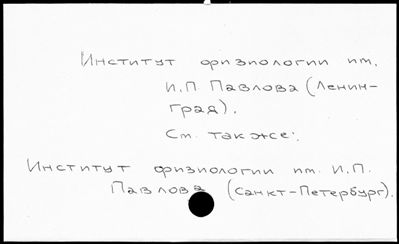 Институт физиологии им.
И.П Павлова (Ленин-
град).
См. также:
Институт физиологии им. И.П.
Павлова (Санкт-Петербург).